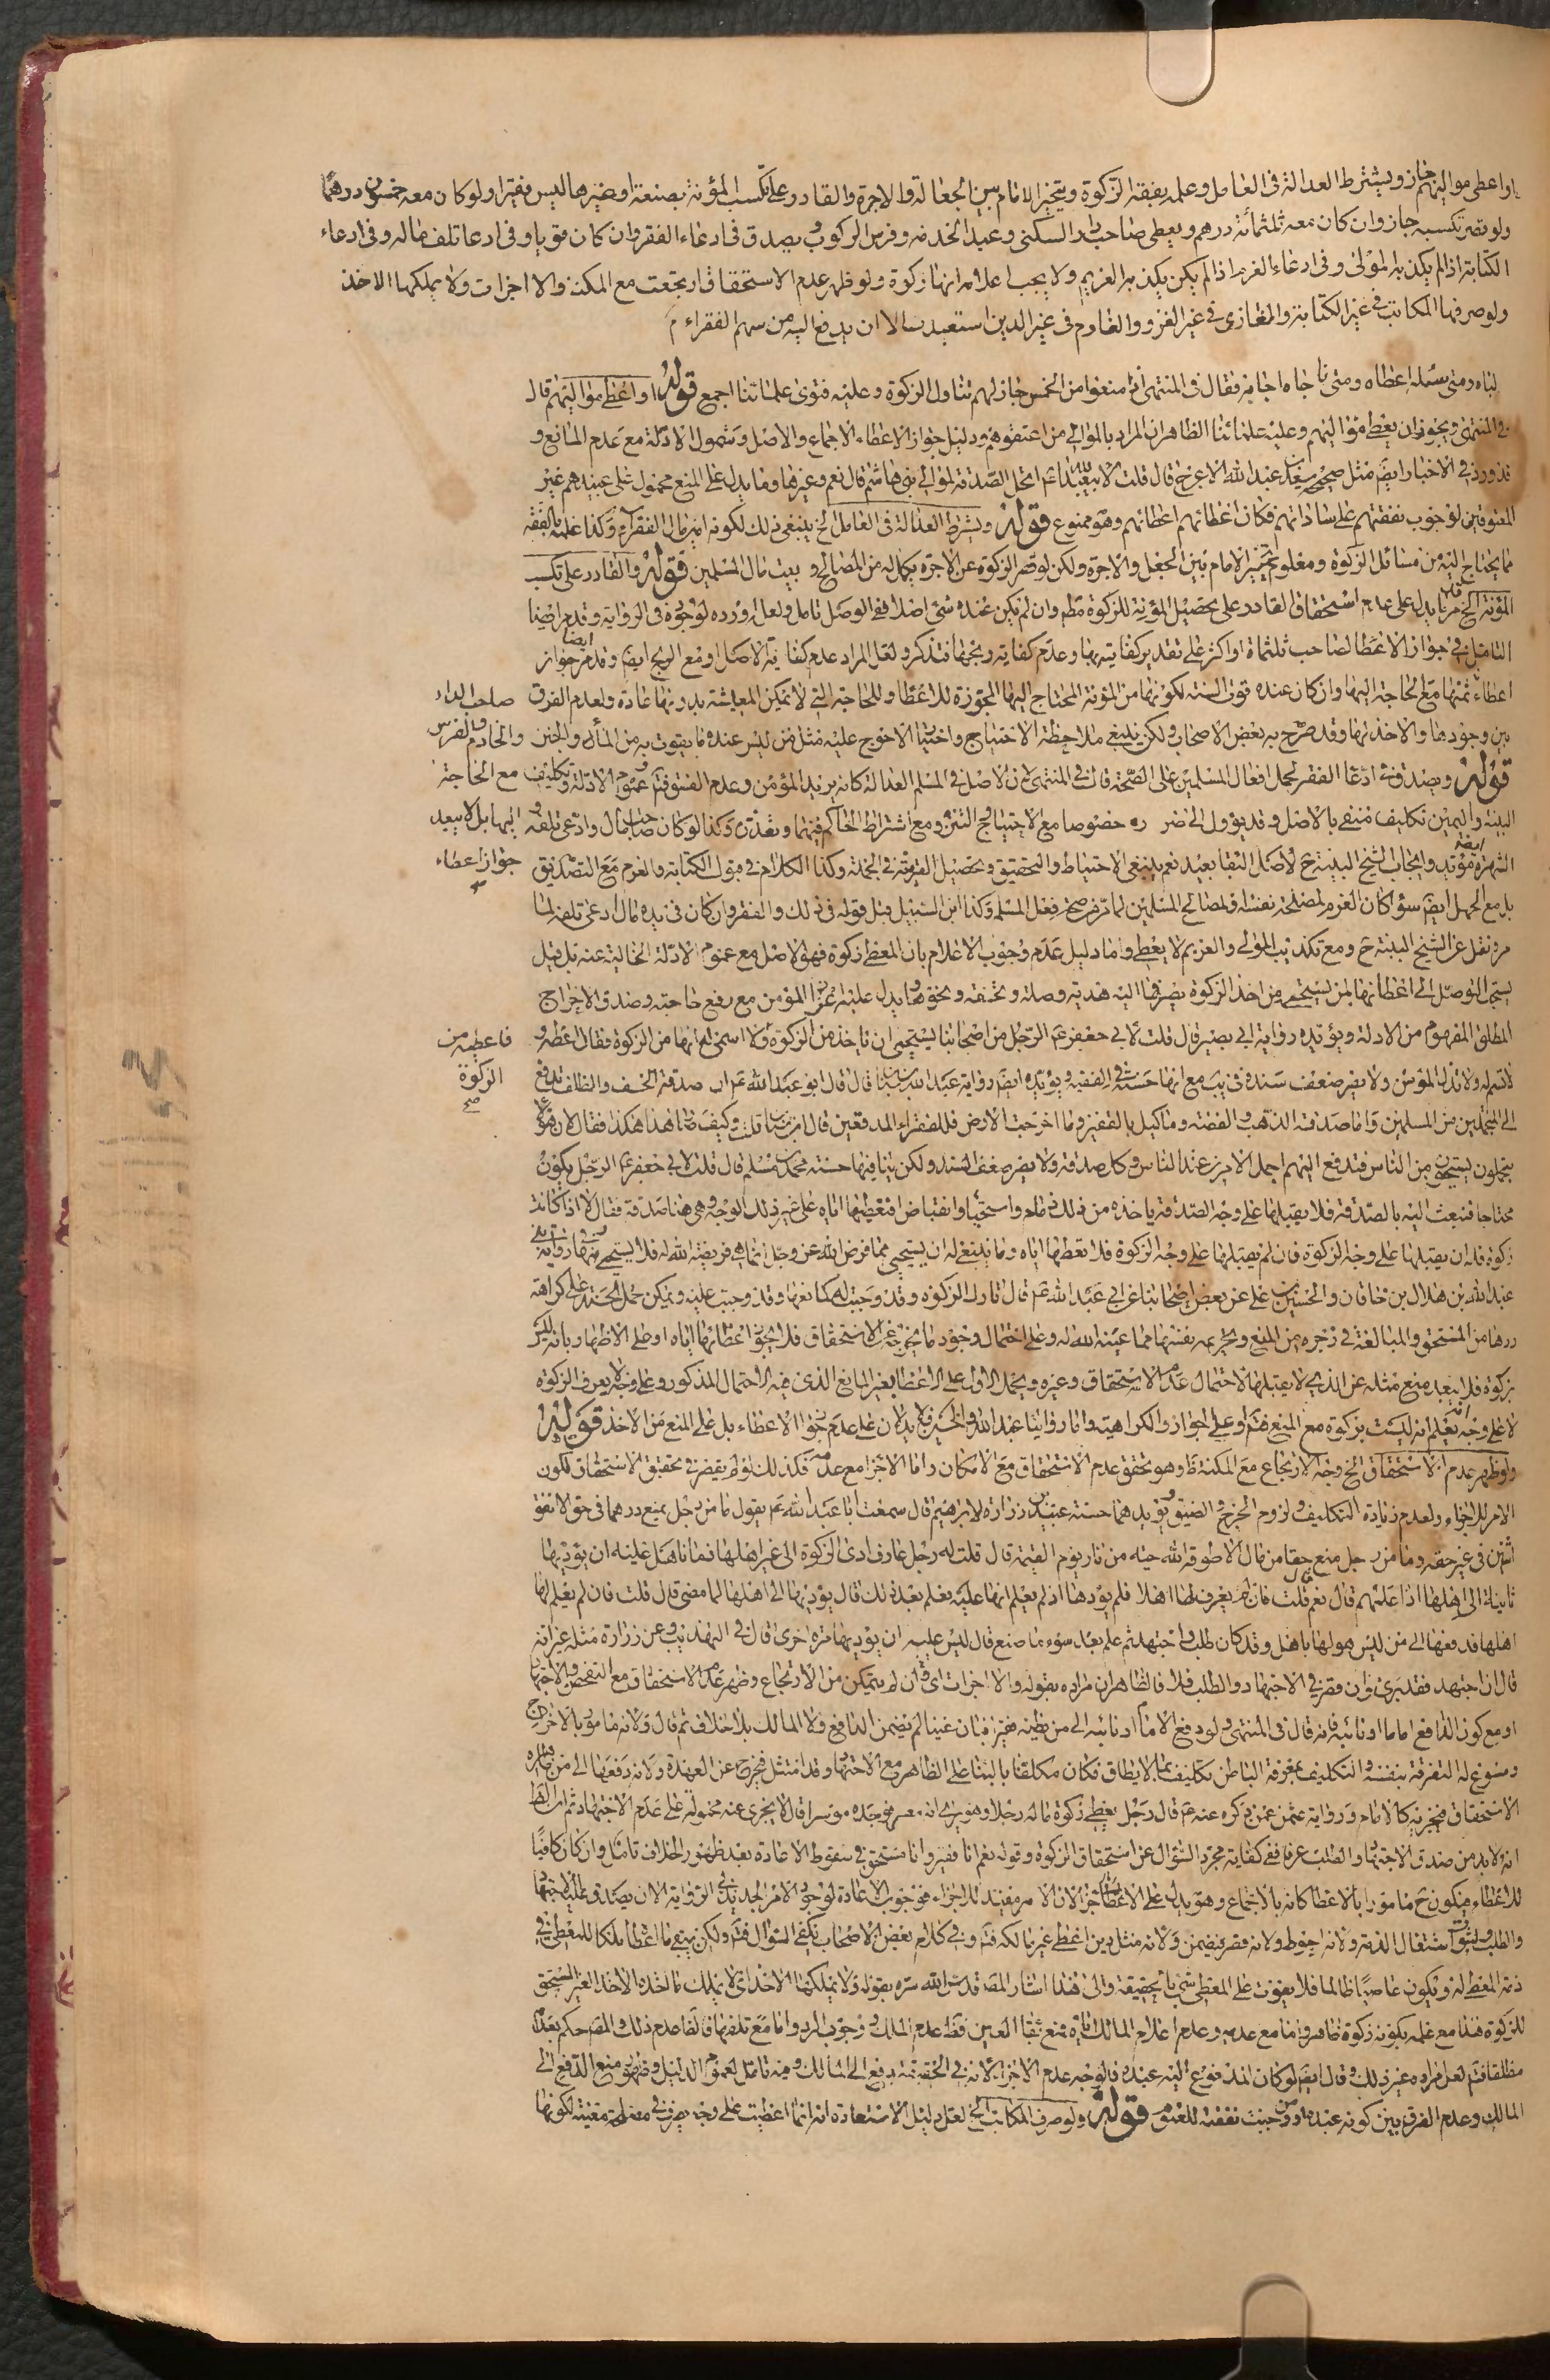 او اعطى مواليهم جاز ويشترط العدالة فى العامل وعلمه بفقه الزكوة ويتخير الامام بين الجعالة والاجرة والقادر على تكسب المؤنة بصنعة او غيرها ليس بفقير ولو كان معه خمسون درهما
ولو قصر تكسبه جاز وان كان معه ثلثمائة درهم ويعطى صاحب دار السكنى وعبد الخدمة وفرس الركوب ويصدق فى ادعاء الفقر وان كان قويا وفى ادعا تلف ماله وفى ادعاء
الكتابة اذا لم يكذبه المولى وفى ادعاء الغريم اذا لم يكن يكذبه الغريم ولا يجب اعلامه انها زكوة ولو ظهر عدم الاستحقاق ارتجعت مع المكنة والا اجزات ولا يملكها الاخذ
ولو صرفها المكاتب فى غير الكتابة والغازى فى غير الغزو والغارم فى غير الدين استعيدت الا ان يدفع اليه من سهم الفقراء
اباه ومتى سئله اعطاه ومتى ناجاه اجابه فقال فى المنتهى انه منعوا من الخمس جاز لهم تناول الزكوة وعليه فتوى علمائنا اجمع قوله او اعطى مواليهم قال
فى المنتهى ويجوز ان يعطى مواليهم وعليه علمائنا الظاهر ان المراد بالموالى من اعتقوهم ودليل جواز الاعطاء الاجماع والاصل وشمول الادلة مع عدم المانع و
قد ورد فى الاخبار ايضا مثل صحيح سعيد بن عبد الله الاعرج قال قلت لابيعبد الله ع اتحل الصدقة لموالى بنى هاشم قال نعم وغيرها وما يدل على المنع محمول على عبيدهم غير
المعتوقين لوجوب نفقتهم على ساداتهم فكان اعطائهم اعطائهم وهو ممنوع قوله ويشترط العدالة فى العامل الخ ينبغى ذلك لكونه امين مال الفقراء وكذا علمه بالفقه
ما يحتاج اليه من مسائل الزكوة ومعلوم تخيير الامام بين الجعل والاجرة ولكن لو قصر الزكوة عن الاجرة يكمل له من المصالح و بيت مال المسلمين قوله والقادر على تكسب
المؤنة الخ قد مر ما يدل على عدم استحقاق القادر على تحصيل المؤنة للزكوة مطم وان لم يكن عنده شئ اصلا ففى الوصل تامل ولعل اورده لوجوده فى الرواية وقد مر ايضا
التامل فى جواز الاعطا لصاحب ثلثماة او اكثر على تقدير كفايته بها وعدم كفاية ربحها فتذكر ولعل المراد عدم كفاية الاصل او مع الربح ايضا وقد مر ايضا جواز
اعطاء ثمنها مع الحاجة اليها وان كان عنده قوت السنة لكونها من المؤنة المحتاج اليها المجوزة للاعطاء وللحاجة التى لا تمكن المعيشة بدونها عادة ولعدم الفرق صاحب الداء
بين وجودها والاخذ لها وقد صرح به بعض الاصحاب ولكن ينبغى ملاحظة الاحتياج واختيار الاحوج عليه مثل من ليس عنده ما يقوت به من المأكل والخبز والخادم والفرس
قوله ويصدق فى ادعا الفقر لحمل افعال المسلمين على الصحة قال فى المنتهى لان الاصل فى المسلم العدالة كانه يريد المؤمن وعدم الفسوق فتم عموم الادلة وتكليف مع الحاجة
البينة واليمين تكليف منفى بالاصل وقد يؤول الى الضرر خصوصا مع الاحتياج التزم ومع اشتراط الحاكم فيهما وتعذره وكذا لو كان صاحب مال وادعى تلفه و اليها بل لا يبعد
الشهرة مؤيد وايجاب الشيخ البينة ح لاصل البقا بعيد نعم ينبغى الاحتياط والتحقيق وتحصيل القرينة فى الجملة وكذا الكلام فى قبول الكتابة والغرم مع التصديق جواز اعطاء
بل مع الجهل ايضا سوا كان الغرم لمصلحة نفسه او لمصالح المسلمين لما مر من صحة فعل المسلم وكذا ابن السبيل قبل قوله فى ذلك والفقر وان كان فى يده مال ادعى تلفه لما
مر ونقل عن الشيخ البينة ح ومع تكذيب المولى والغريم لا يعطى واما دليل عدم وجوب الاعلام بان المعطى زكوة فهو الاصل مع عموم الادلة الخالية عنه بل قيل
يستحب التوصل الى اعطائها لمن يستحيى من اخذ الزكوة بصرفها اليه هدية وصلة وتحفة ونحوها ويدل عليه عزة المؤمن مع رفع حاجته وصدق الاخراج
المطلق المفهوم من الادلة ويؤيده رواية ابى بصير قال قلت لابى جعفر ع الرجل من اصحابنا يستحيى ان ياخذ من الزكوة ولا اسمى له انها من الزكوة فقال اعطه و فاعطيه من
لا تسم له ولا تذل المؤمن ولا يضر ضعف سنده فى يب مع انها حسنة فى الفقيه ويؤيده ايضا رواية عبد الله بن سنان قال قال ابو عبد الله ع ان صدقة الخف والظلف تدفع الزكوة
الى المتجملين من المسلمين واما صدقة الذهب والفضة وما كيل بالقفيز وما اخرجت الارض فللفقراء المدقعين قال ابن سنان قلت وكيف صار هذا هكذا فقال لان هؤلاء
يتجملون يستحيون من الناس فيدفع اليهم اجمل الامرين عند الناس وكل صدقة ولا يضر ضعف السند ولكن ينافيها حسنة محمد بن مسلم قال قلت لابى جعفر ع الرجل يكون
محتاجا فنبعث اليه بالصدقة فلا يقبلها على وجه الصدقة ياخذه من ذلك ذمام واستحيا وانقباض افنعطيها اياه على غير ذلك الوجه وهى منا صدقة فقال لا اذا كانت
زكوة فله ان يقبلها على وجه الزكوة فان لم يقبلها على وجه الزكوة فلا تعطها اياه وما ينبغى له ان يستحيى مما فرض الله عز وجل انما هى فريضة الله له فلا يستحيى منها ورواية
عبد الله بن هلال بن خاقان والحسين بن على عن بعض اصحابنا عن ابى عبد الله ع قال تارك الزكوة وقد وجبت له كمانعها وقد وجبت عليه ويمكن حمل الحسنة على كراهة
ردها من المستحق والمبالغة فى زجره من المنع وتحريمه نفسه مما عينه الله له وعلى احتمال وجود ما يخرجه عن الاستحقاق فلا يجوز اعطائها اياه او على الاظهار بانه ليس
بزكوة فلا يبعد منع مثله عن الذى لا يقبلها لاحتمال عدم الاستحقاق وغيره ويحمل الاول على الاعطا بغير المانع الذى فيه الاحتمال المذكور وعلى وجه لا يعرف الزكوة
لا على وجه يعلم انه ليست بزكوة مع المنع فتم او على الجواز والكراهية واما روايتا عبد الله والحسين فلا يدلان على عدم جواز الاعطاء بل على المنع من الاخذ قوله
ولو ظهر عدم الاستحقاق الخ وجه الارتجاع مع المكنة ظ وهو تحقق عدم الاستحقاق مع الامكان واما الاجزا مع عدمه فكذلك لو لم يقصر فى تحقيق الاستحقاق لكون
الامر للاجزاء ولعدم زيادة التكليف ولزوم الحرج والضيق ويؤيدهما حسنة عبيد بن زرارة لابراهيم قال سمعت ابا عبد الله ع يقول ما من رجل يمنع درهما فى حق الا انفق
اثنين فى غير حقه وما من رجل منع حقا من مال الا طوقه الله حية من نار يوم القيمة قال قلت له رجل عارف ادى الزكوة الى غير اهلها زمانا هل عليه ان يؤديها
ثانية الى اهلها اذا علمهم قال نعم قلت فان لم يعرف لها اهلا فلم يؤدها او لم يعلم انها عليه فعلم بعد ذلك قال يؤديها الى اهلها لما مضى قال قلت فان لم يعلم لها
اهلها فدفعها الى من ليس هو لها باهل وقد كان طلب واجتهد ثم علم بعد سوء ما صنع قال ليس عليه ان يؤديها مرة اخرى قال فى التهذيب وعن زرارة مثله غير انه
قال ان اجتهد فقد برئ وان قصر فى الاجتهاد والطلب فلا فالظاهر ان مراده بقوله والا اجزات اى وان لم يتمكن من الارتجاع وظهر عدم الاستحقاق مع الفحص والاجتهاد
او مع كون الدافع اماما او نائبه فانه قال فى المنتهى ولو دفع الامام او نائبه الى من يظنه فقيرا فبان غنيا لم يضمن الدافع ولا المالك بلا خلاف ثم قال ولانه مامور بالاخراج
وسوغ له التفرقة بنفسه والتكليف بمعرفة الباطن تكليف بما لا يطاق فكان مكلفا بالبناء على الظاهر مع الاجتهاد وقد امتثل فخرج عن العهدة ولانه دفعها الى من ظاهره
الاستحقاق فتجزيه كالامام ورواية عمن ذكره عنه ع قال رجل يعطى زكوة ماله رجلا وهو يرى انه معسر فوجده موسرا قال لا يجزى عنه محمولة على عدم الاجتهاد ثم ان الظ
انه لا بد من صدق الاجتهاد والطلب عرفا ففى كفاية مجرد السؤال عن استحقاق الزكوة وقوله نعم انا فقير وانا مستحق فى سقوط الاعادة بعد ظهور الخلاف تامل وان كان كافيا
للاعطاء فيكون ح مامورا بالاعطا كانه بالاجماع وهو يدل على الاجزاء لان الامر مفيد للاجزاء فوجوب الاعادة لوجود الامر الجديد فى الرواية الا ان يصدق عليه الاجتهاد
والطلب ولثبوت اشتغال الذمة ولانه احوط ولانه قصر فيضمن ولانه مثل دين اعطى غير مالكه فتم وفى كلام بعض الاصحاب يكفى السؤال فتم ولكن يبقى ما اعطا ملكا للمعطى فى
ذمة المعطى له ويكون غاصبا ظالما فلا يفوت على المعطى شئ بالحقيقة والى هذا اشار المصـ قدس الله سره بقوله ولا يملكها الاخذ اى لا يملك ما اخذه الاخذ الغير المستحق
للزكوة هذا مع علمه بكونه زكوة ظاهر واما مع عدمه وعدم اعلام المالك اياه فمع بقا العين فقط عدم الملك ووجوب الرد واما مع تلفها فالقاعدة ذلك والمصـ حكم بعدمه
مطلقا فتم لعل مراده غير ذلك وقال ايضا لو كان المدفوع اليه عبده فالوجه عدم الاجزاء لانه فى الحقيقة لم يدفع الى المالك وفيه تامل لعموم الدليل وظهور منع الدفع الى
المالك وعدم الفرق بين كونه عبده ومن وجبت نفقته للعموم قوله ولو صرف المكاتب الخ لعل دليل الاستعادة انه انما اعطيت على وجه صرف فى مصلحة معينة لكونها